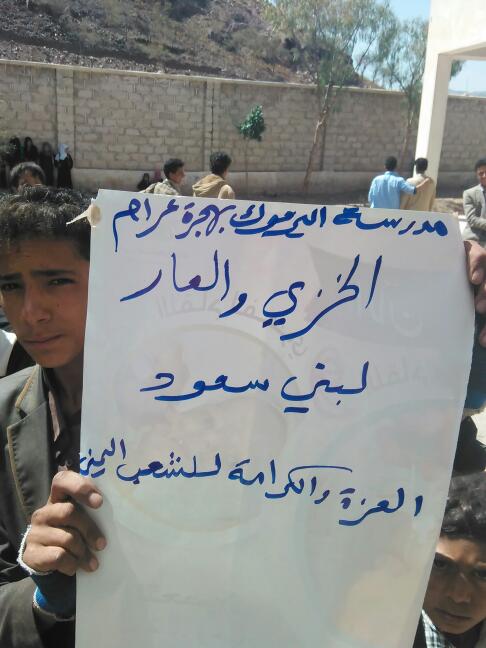 مدرسة اليرموك بهجرة عرام
الخزي والعار
لبني سعود
العزة والكرامة للشعب اليمني